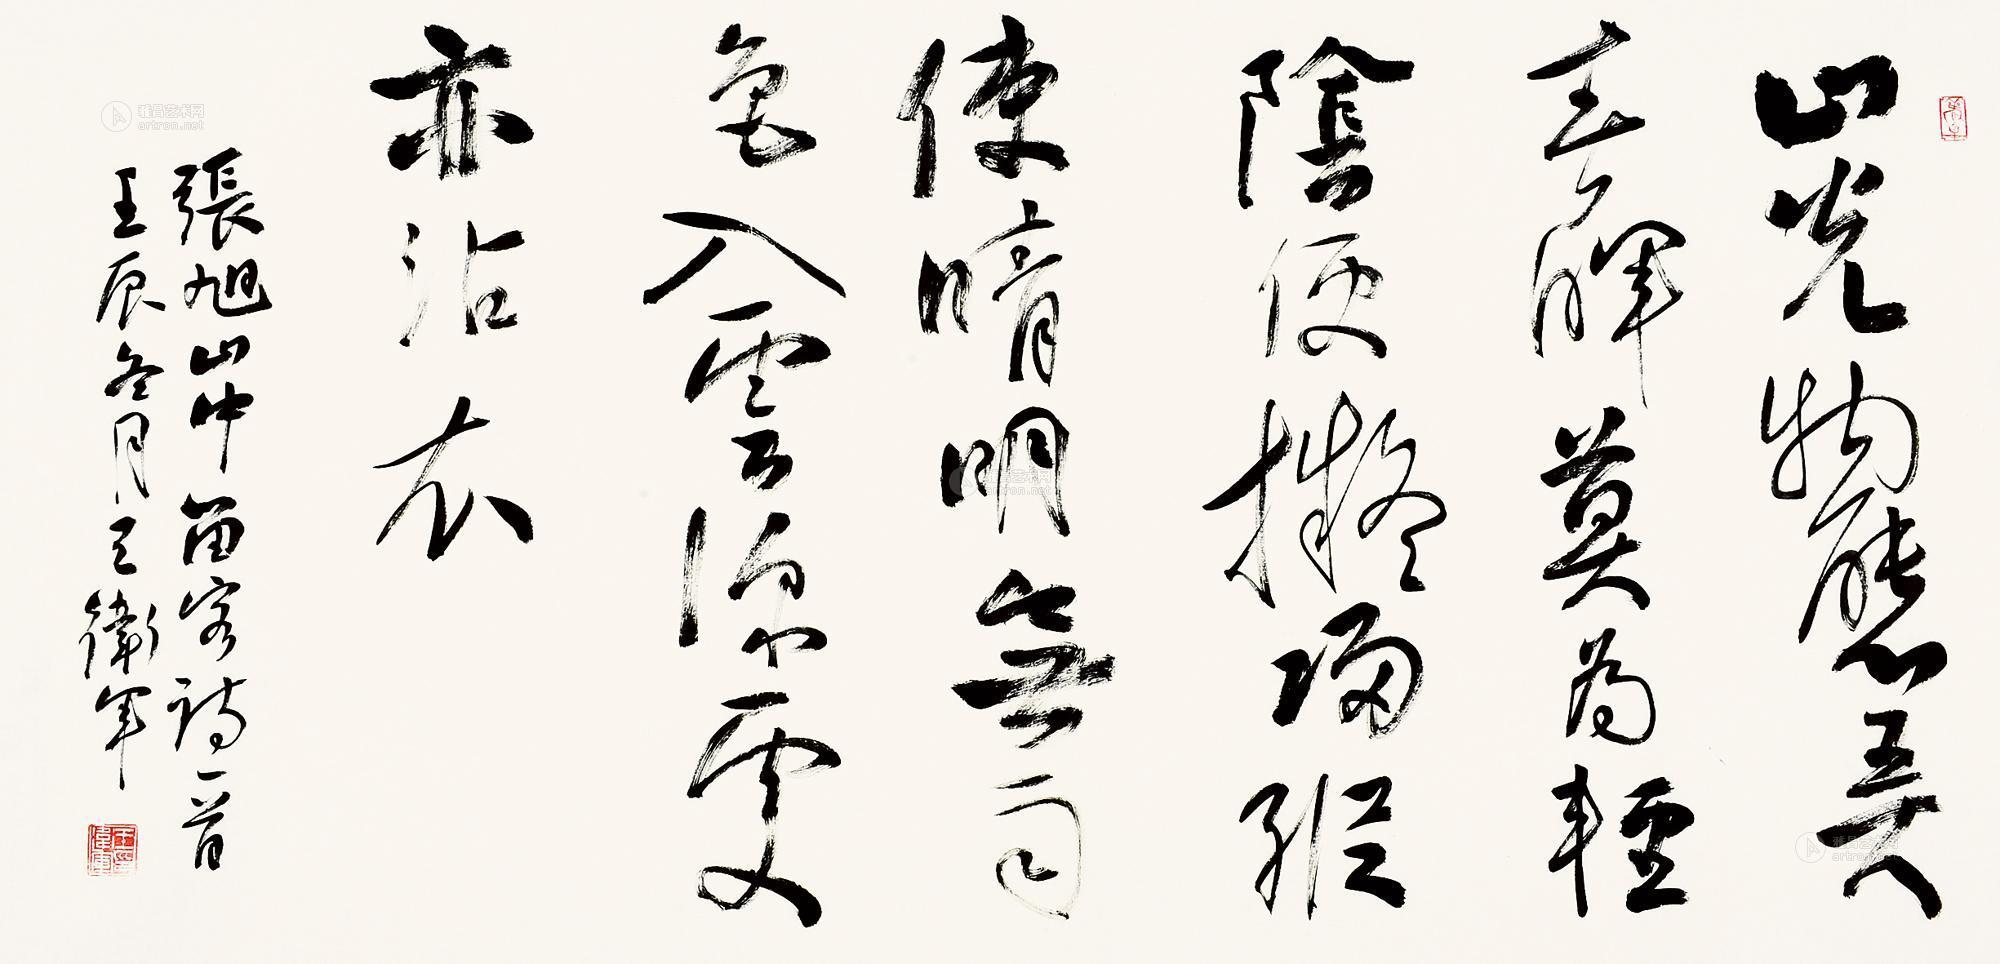 山光物態弄
春暉莫為輕
陰便擬歸縱
使晴明無雨
色入雲深處
亦沾衣
張旭山中留客詩一首
壬辰冬月王衛軍
雅昌艺术网
artron.net